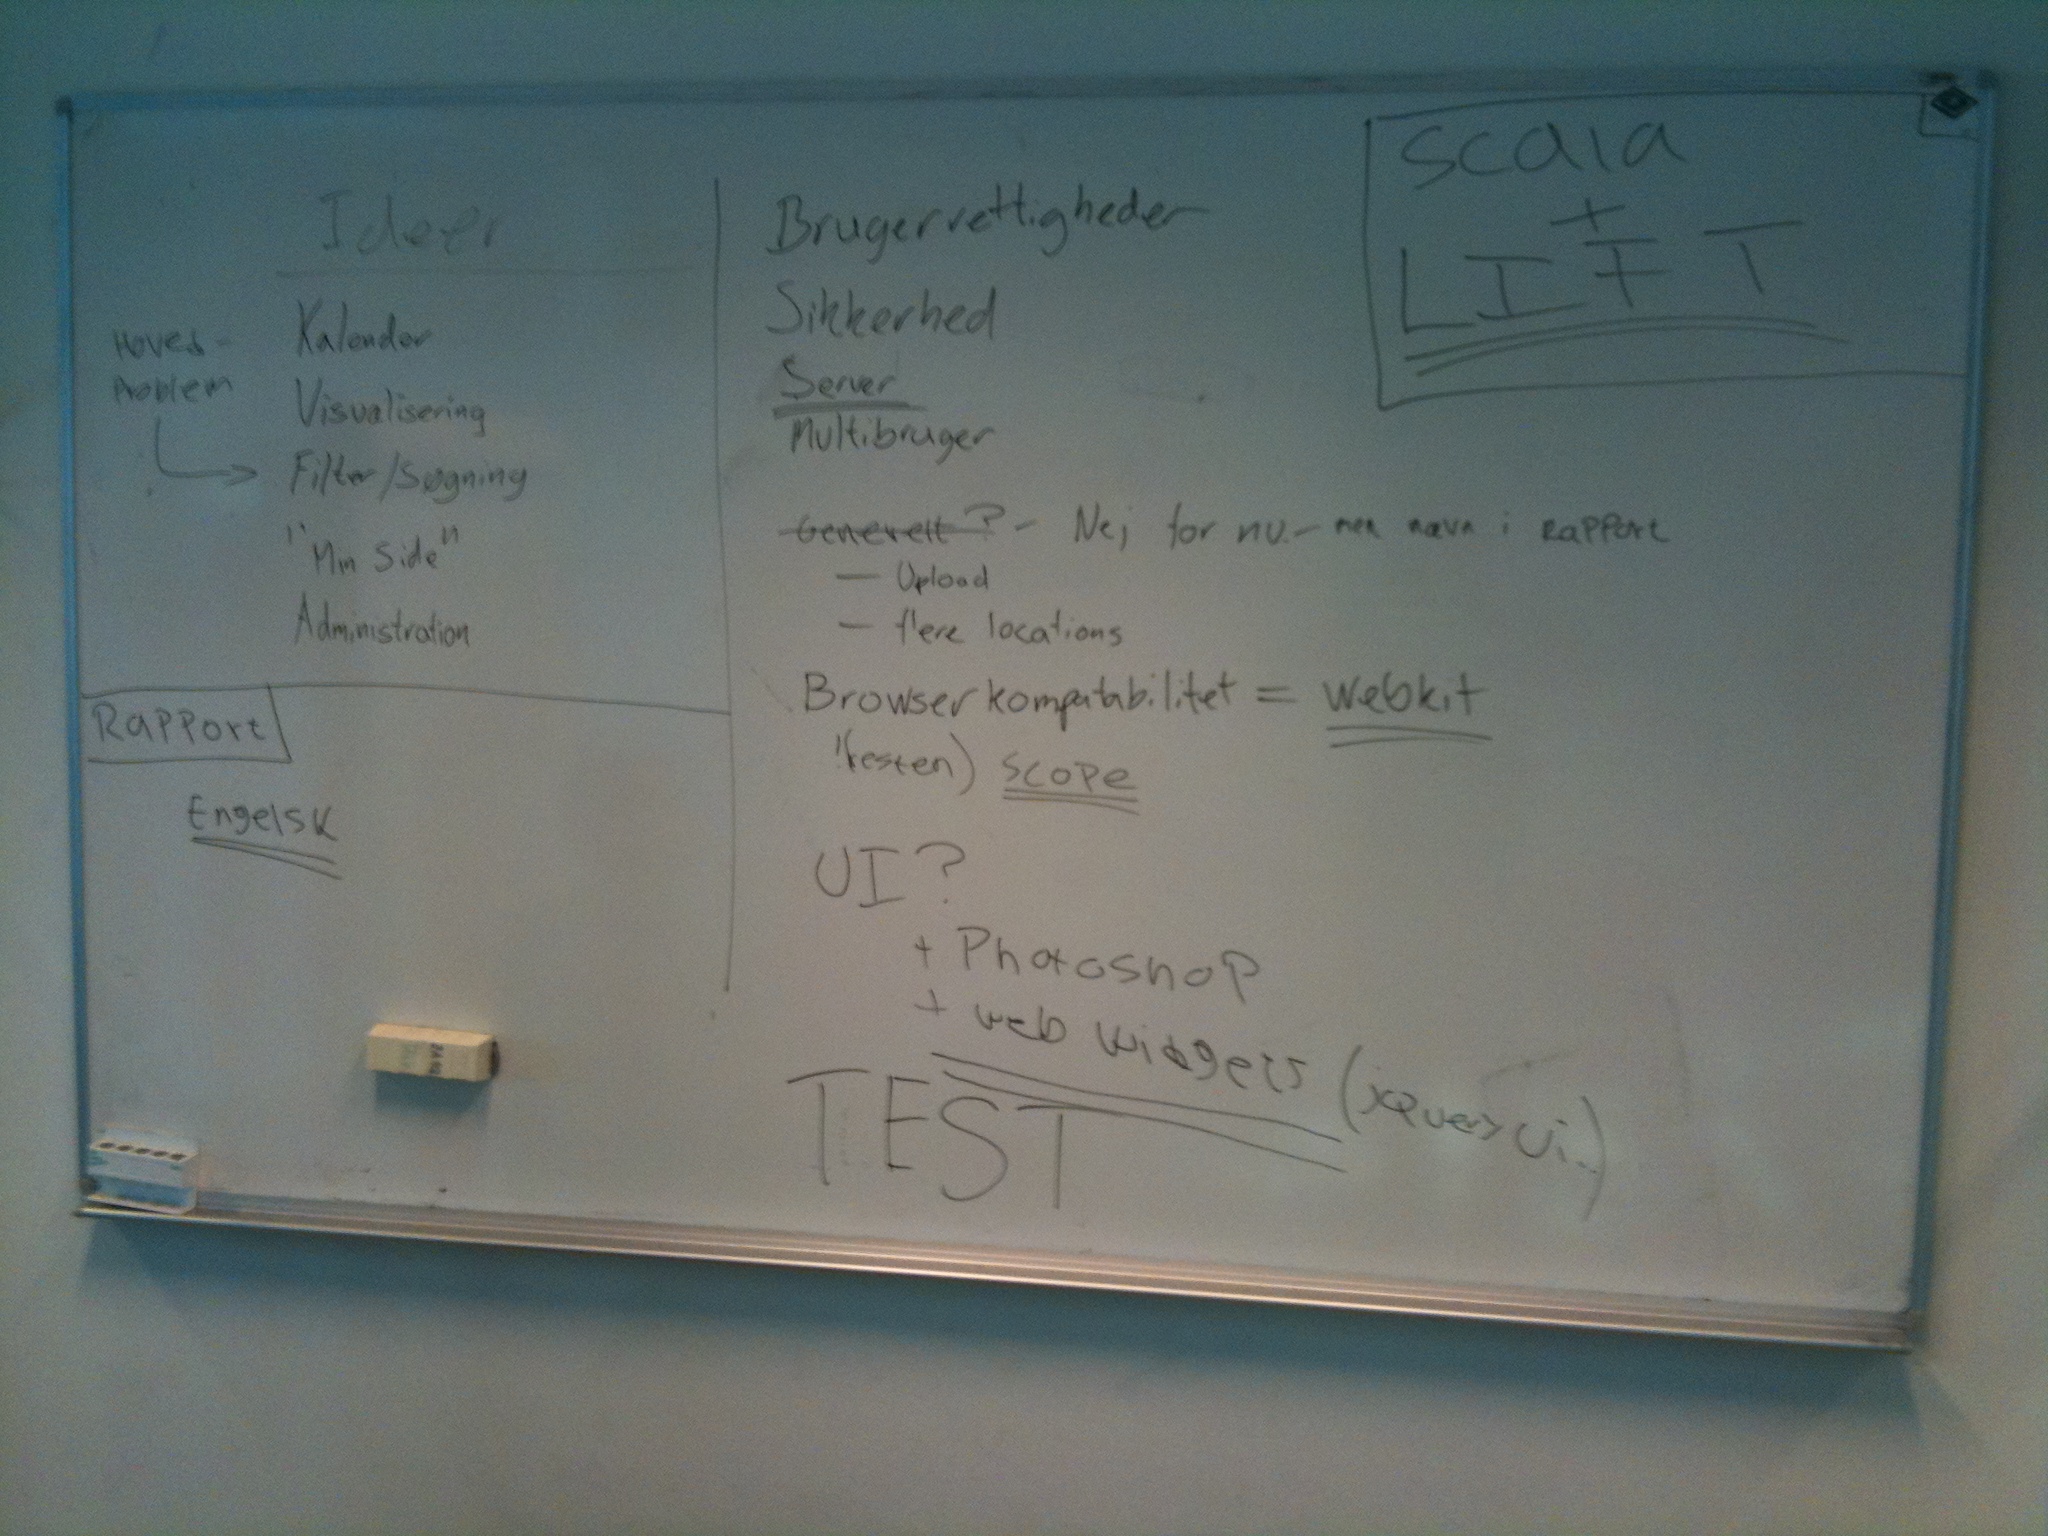 Ideer
Hoved-
Problem
Kalender
Visualisering
Filter/Søgning
"Min Side"
Administration
Rapport
Engelsk
Brugerrettigheder
Sikkerhed
Server
Multibruger
Generelt? - Nej for nu - men nævn i Rapport
- Upload
- flere locations
Browserkompatabilitet = Webkit
!(resten) scope
UI?
+ Photoshop
+ web widgets (jQuery Ui..)
TEST
Scala
+
LIFT